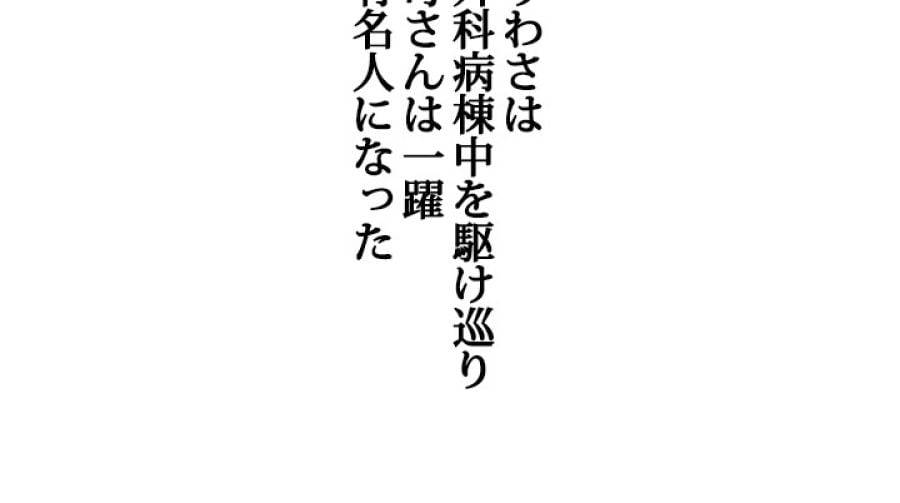 わさは
科病棟中を駆け巡り
さんは一躍
名人になった